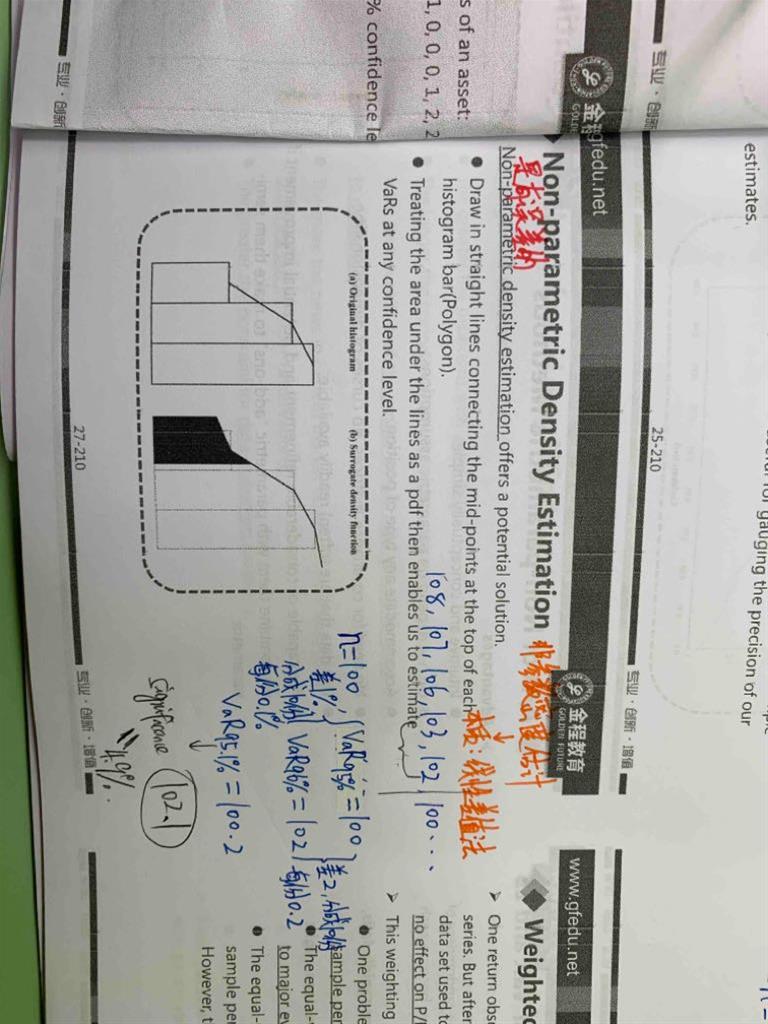 estimates.
useful for gauging the precision of our
专业 · 创新
25-210
专业 · 创新 · 增值
s of an asset:
1, 0, 0, 0, 1, 2, 2
% confidence le
专业 · 创新
gfedu.net
金程教育
GOLDEN FUTURE
Non-parametric Density Estimation
非参数密度估计
是成误差的
Non-parametric density estimation offers a potential solution.
● Draw in straight lines connecting the mid-points at the top of each
histogram bar(Polygon).
本质：线性差值法
108, 107, 106, 103, 102, 100 ...
● Treating the area under the lines as a pdf then enables us to estimate
VaRs at any confidence level.
(a) Original histogram
(b) Surrogate density function
n=100, VaR95% = 100
差1%
VaR96% = 102
差2, 分成10份
分成10份
每份0.1%
每份0.2
VaR95.1% = 100.2
102.1
significance
4.9%
27-210
专业 · 创新 · 增值
www.gfedu.net
Weighted
➢ One return obs
series. But after
data set used to
no effect on P/
➢ This weighting
● One proble
sample per
● The equal-
to major ev
● The equal-
sample per
However, t